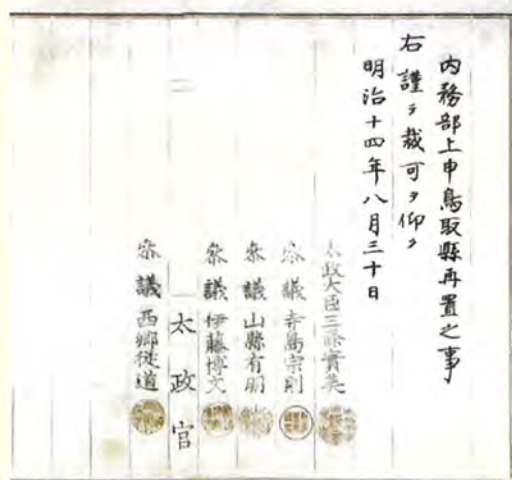 内務部上申鳥取縣再置之事
右謹テ裁可ヲ仰ク
明治十四年八月三十日
太政大臣三條實美
參議寺島宗則
參議山縣有朋
參議伊藤博文
太政官
參議西郷従道